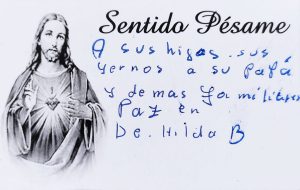 Sentido Pésame
A sus hijas. sus
yernos a su Papá
y demas Familiares
Paz en
De. Hilda B